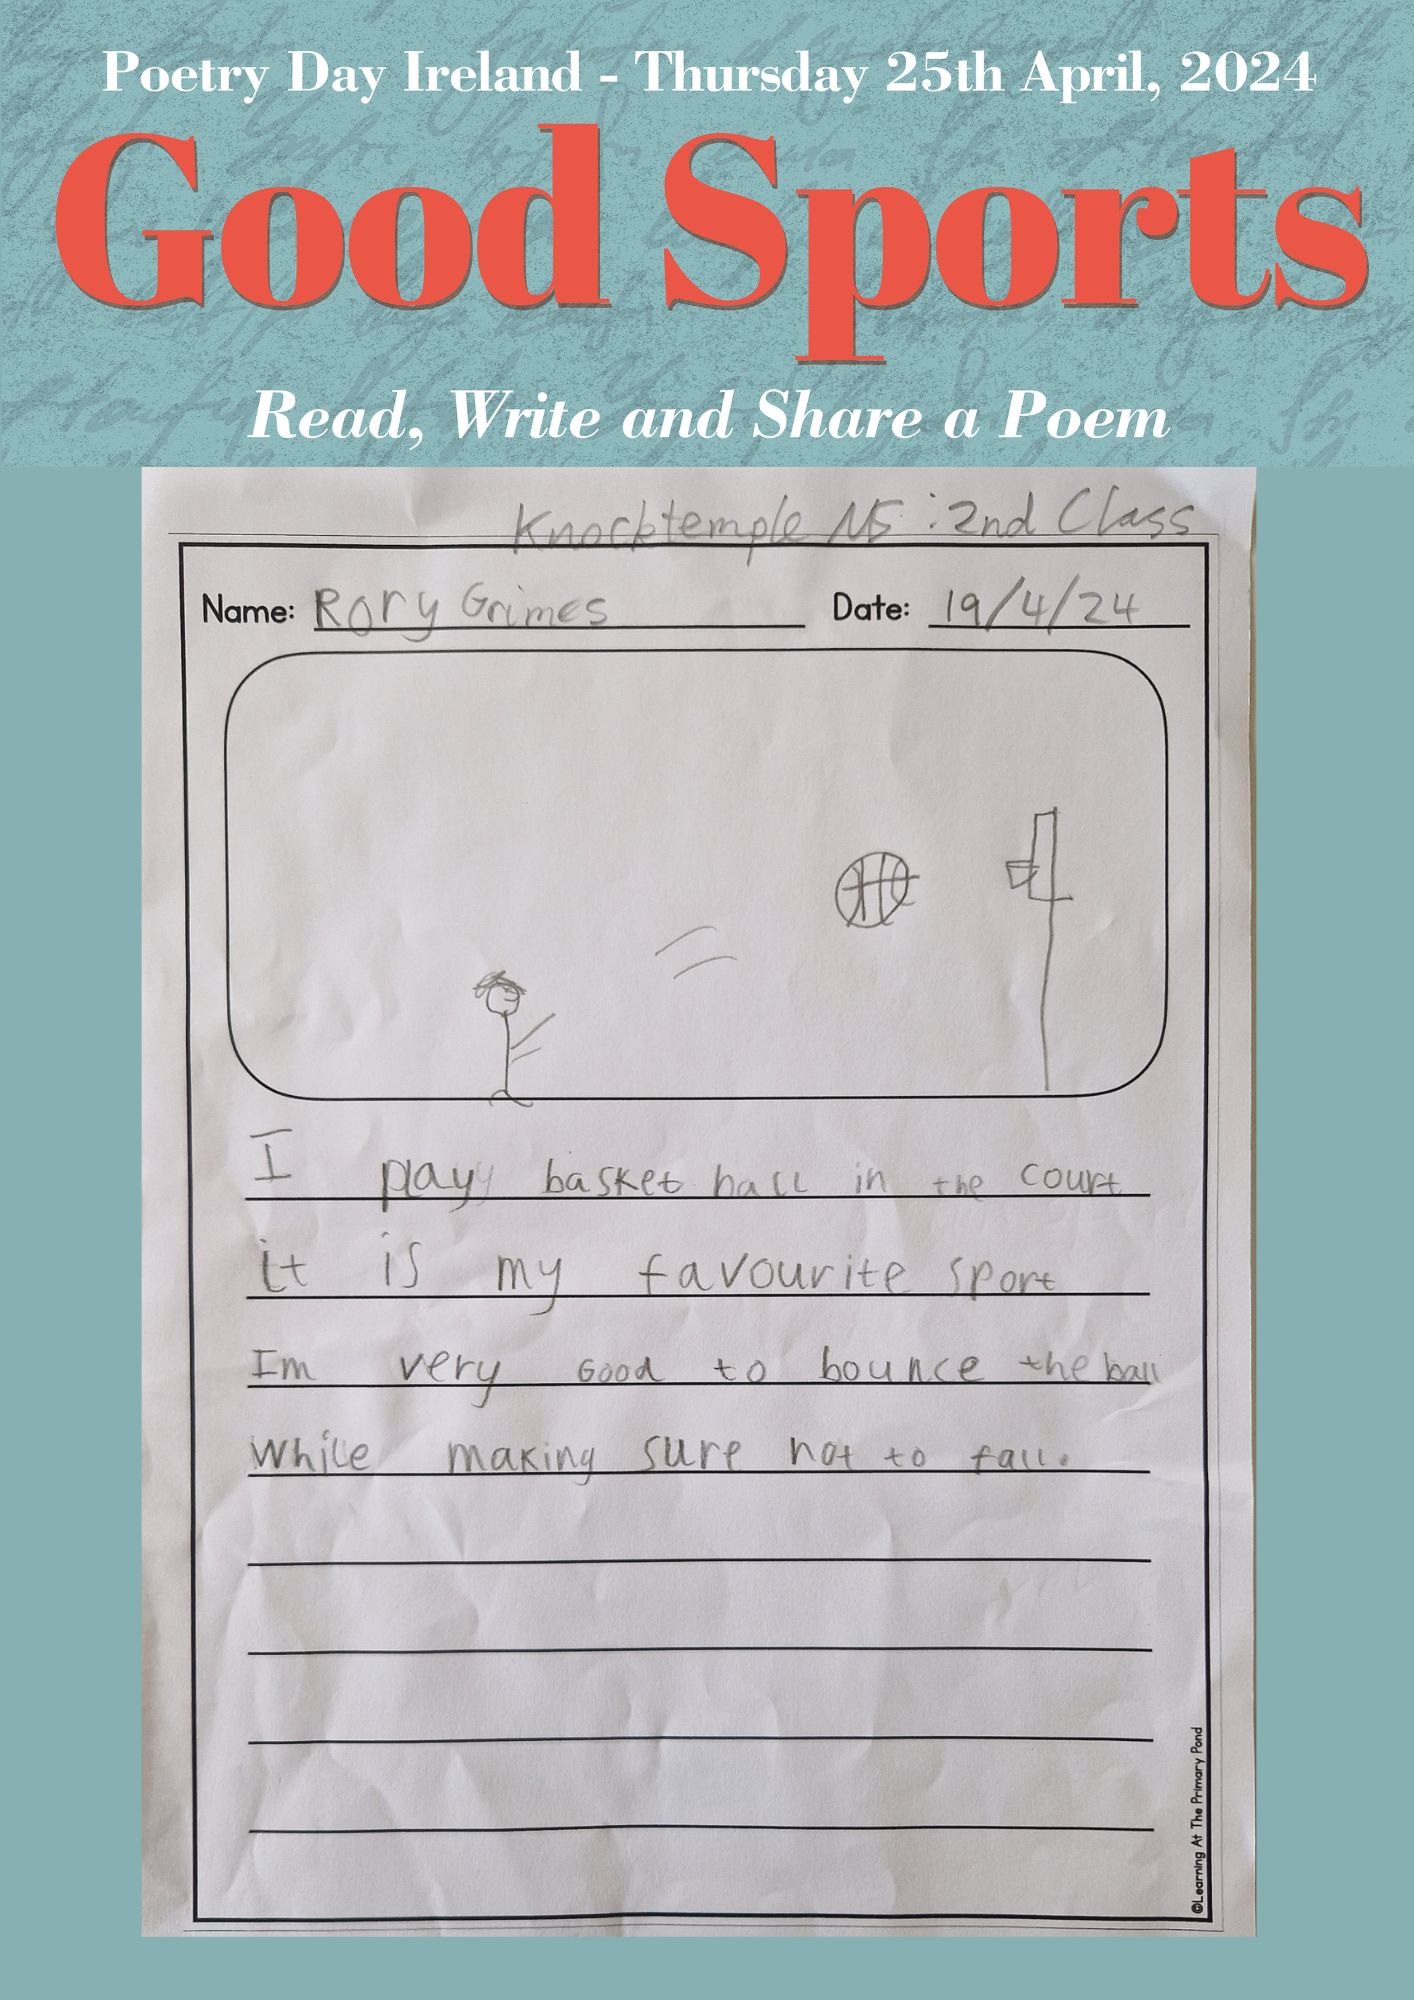 Poetry Day Ireland - Thursday 25th April, 2024
Good Sports
Read, Write and Share a Poem
Knocktemple NS : 2nd Class
Name: Rory Grimes Date: 19/4/24
I play basket ball in the court
it is my favourite sport
Im very Good to bounce the ball
While making sure not to fall.
©Learning At The Primary Pond